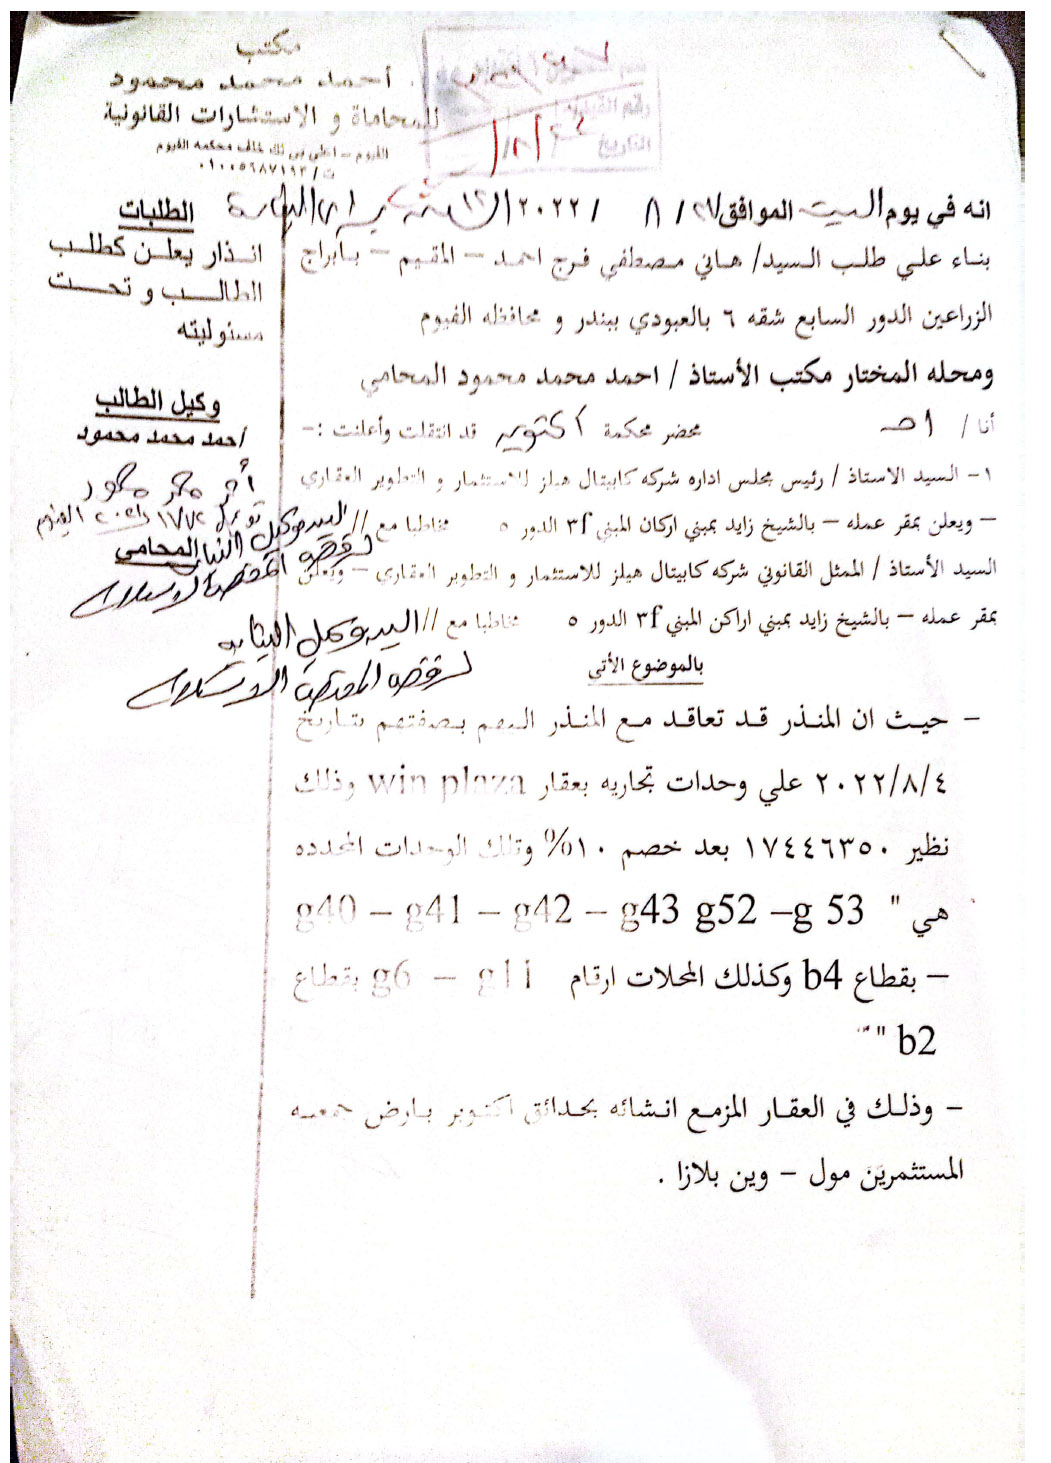 مكتب
أحمد محمد محمود
للمحاماة و الاستشارات القانونية
الفيوم – اعلي بي تك خلف محكمه الفيوم
رقم
التاريخ
انه في يوم السبت الموافق ٢٧ / ٨ / ٢٠٢٢ الساعة
بناء علي طلب السيد/ هاني مصطفي فرج احمد – المقيم – بأبراج
الزراعين الدور السابع شقه ٦ بالعبودي ببندر و محافظه الفيوم
ومحله المختار مكتب الأستاذ / احمد محمد محمود المحامي
أنا / محضر محكمة اكتوبر قد انتقلت وأعلنت :–
١– السيد الاستاذ / رئيس مجلس اداره شركه كابيتال هيلز للاستثمار و التطوير العقاري
– ويعلن بمقر عمله – بالشيخ زايد بمبني اركان المبني ٣f الدور ٥ مخاطبا مع //
السيد الأستاذ / الممثل القانوني شركه كابيتال هيلز للاستثمار و التطوير العقاري – ويعلن
بمقر عمله – بالشيخ زايد بمبني اراكن المبني ٣f الدور ٥ مخاطبا مع //
بالموضوع الأتى
– حيث ان المنذر قد تعاقد مع المنذر اليهم بصفتهم بتاريخ
٢٠٢٢/٨/٤ علي وحدات تجاريه بعقار win plaza وذلك
نظير ١٧٤٤٦٣٥٠ بعد خصم ١٠% وتلك الوحدات المحدده
هي " g40 – g41 – g42 – g43 g52 –g 53
– بقطاع b4 وكذلك المحلات ارقام g6 – g11 بقطاع
b2 "
– وذلك في العقار المزمع انشائه بحدائق اكتوبر بارض جمعيه
المستثمرين مول – وين بلازا .
الطلبات
انذار يعلن كطلب
الطالب و تحت
مسئوليته
وكيل الطالب
أحمد محمد محمود
المحامي